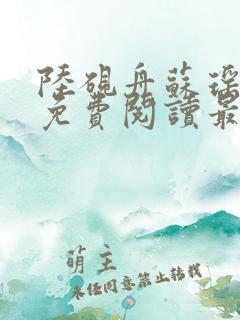 陸硯舟蘇瑤
免費閱讀最
萌主
未经同意禁止转载